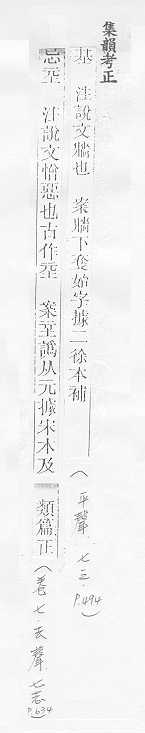 集韻考正
基 注說文牆也 案牆下奪始字據二徐本補(平聲.七三.P.494)
忘㤅 注說文惛惡也古作㤅 案㤅譌从元據宋本及類篇正(卷七.去聲七志P.634)